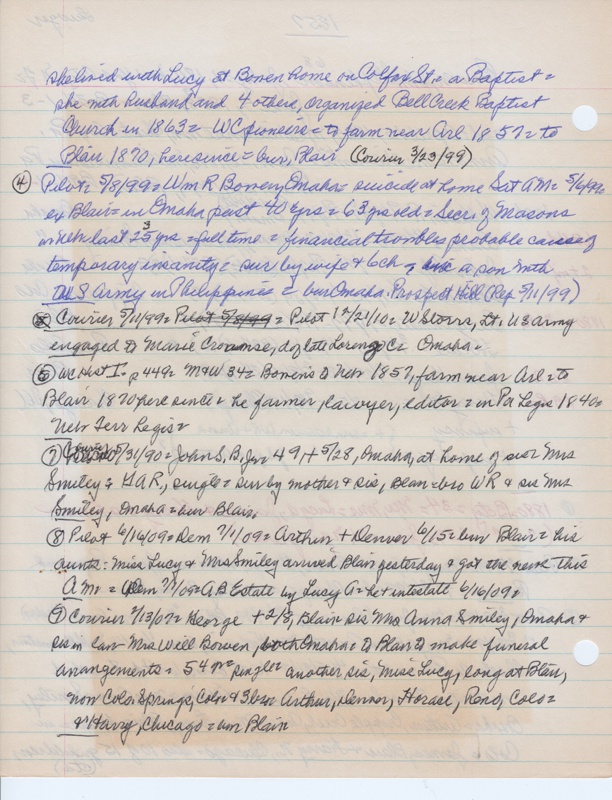 she lived with Lucy at Bowen home on Colfax St. = a Baptist =
she with husband and 4 others, organized Bell Creek Baptist
Church in 1863 = WC pioneers = to farm near Arl 1857 = to
Blair 1870, here since = bur, Blair (Courier 3/23/99)
④ Pilot = 5/8/99 = Wm R Bowen, Omaha = suicide at home Sat AM = 5/6/99
ex Blair = in Omaha past 40 yrs = 63 yrs old = Secr. of Masons
in Neb last 23 yrs = full time = financial troubles probable cause of
temporary insanity = sur by wife & 6 ch, a son with
US Army in Philippines = bur Omaha. Prospect Hill (Rep 5/11/99)
Courier 5/11/99 = Pilot 5/8/99 = Pilot 12/21/10 = W Storrs, Lt. US army
engaged to Marie Crounse, d of late Lorenzo C = Omaha =
⑥ WC Hist I = p 449 = M & W 34 = Bowens to Neb 1857, farm near Arl = to
Blair 1870 here since = he farmer, lawyer, editor = in Pa Legis 1840 =
Neb Terr Legis =
⑦ Courier 5/31/90 = John S. B. Jr = 49, + 5/28, Omaha, at home of sis = Mrs
Smiley = GAR, single = sur by mother & sis, Blair = bro WR & sis Mrs
Smiley, Omaha = bur Blair,
⑧ Pilot 6/16/09 = Dem 7/1/09 = Arthur + Denver 6/15 = bur Blair = his
aunts: Miss Lucy & Mrs Smiley arrived Blair yesterday & got the news this
AM = Dem 7/1/09 = AB Estate by Lucy A = he + intestate 6/16/09 =
⑨ Courier 2/13/07 = George + 2/8, Blair sis Mrs Anna Smiley, Omaha &
sis in law Mrs Will Bowen, both Omaha = to Blair to make funeral
arrangements = 54 single = another sis, Miss Lucy, long at Blair,
now Colo. Springs, Colo & 3 bro = Arthur, Denver, Horace, Reno, Colo =
& Harry, Chicago = bur Blair